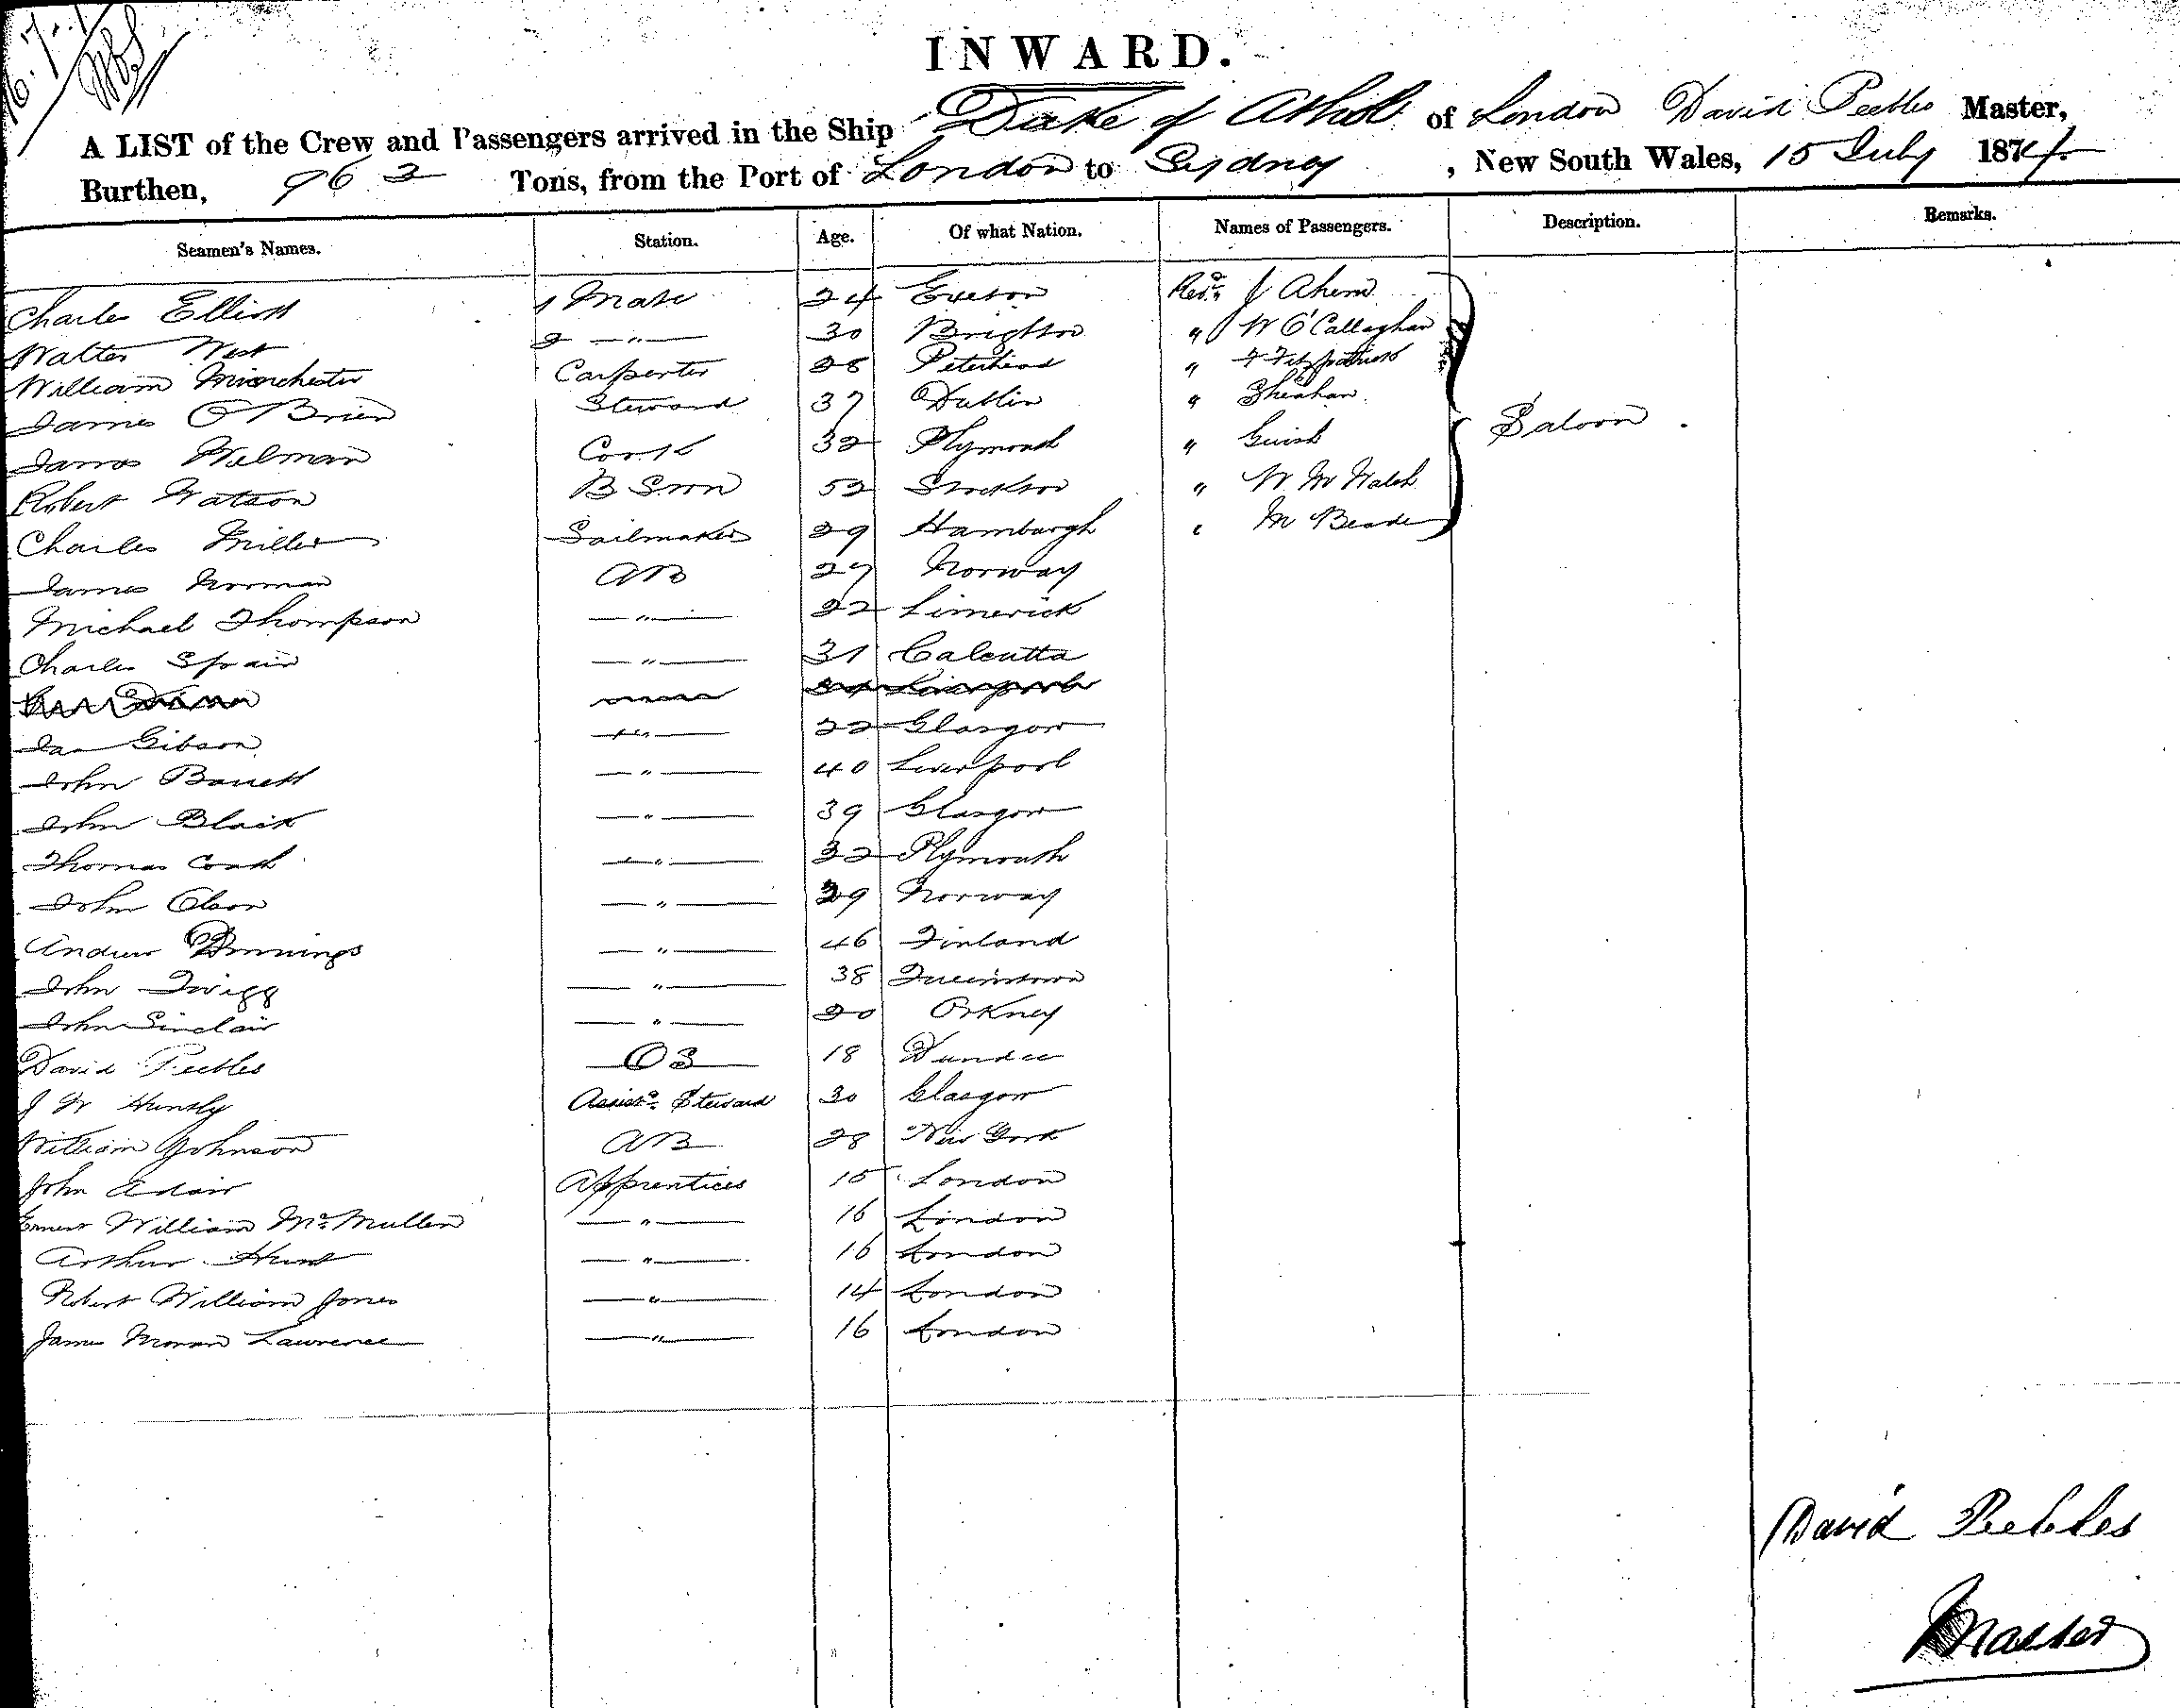 INWARD.
A LIST of the Crew and Passengers arrived in the Ship Duke of Athol of London David Peebles Master,
Burthen, 963 Tons, from the Port of London to Sydney, New South Wales, 15 July 1874.
Seamen's Names. Station. Age. Of what Nation. Names of Passengers. Description. Remarks.
Charles Elliott 1 Mate 24 Revd. J Ahern
Walter West 2 — " — 30 Brighton " W O'Callaghan
William Carpenter 28 Peterhead " Fitzpatrick
James O'Brien Steward 37 Dublin " Sheahan
James Welman Cook 32 Plymouth "
Saloon.
Robert Watson B Swn 52 Stockton " W Walsh
Charles Miller Sailmaker 29 Hamburgh " M
James Norman AB 27 Norway
Michael Thompson — " — 22 Limerick
Charles Spain — " — 31 Calcutta
Liverpool
Jas Gibson — " — 22 Glasgow
John Barrett — " — 40 Liverpool
John Blair — " — 39 Glasgow
Thomas — " — 32 Plymouth
John Olson — " — 29 Norway
Andrew — " — 46 Finland
John Twigg — " — 38 Queenstown
John Sinclair — " — 20 Orkney
David Peebles OS 18 Dundee
J W Assist. Steward 30 Glasgow
William Johnson AB 28 New York
John Adair Apprentices 15 London
Ernest William McMullen — " — 16 London
Arthur Hunt — " — 16 London
Robert William Jones — " — 14 London
James Moran Lawrence — " — 16 London
David Peebles
Master